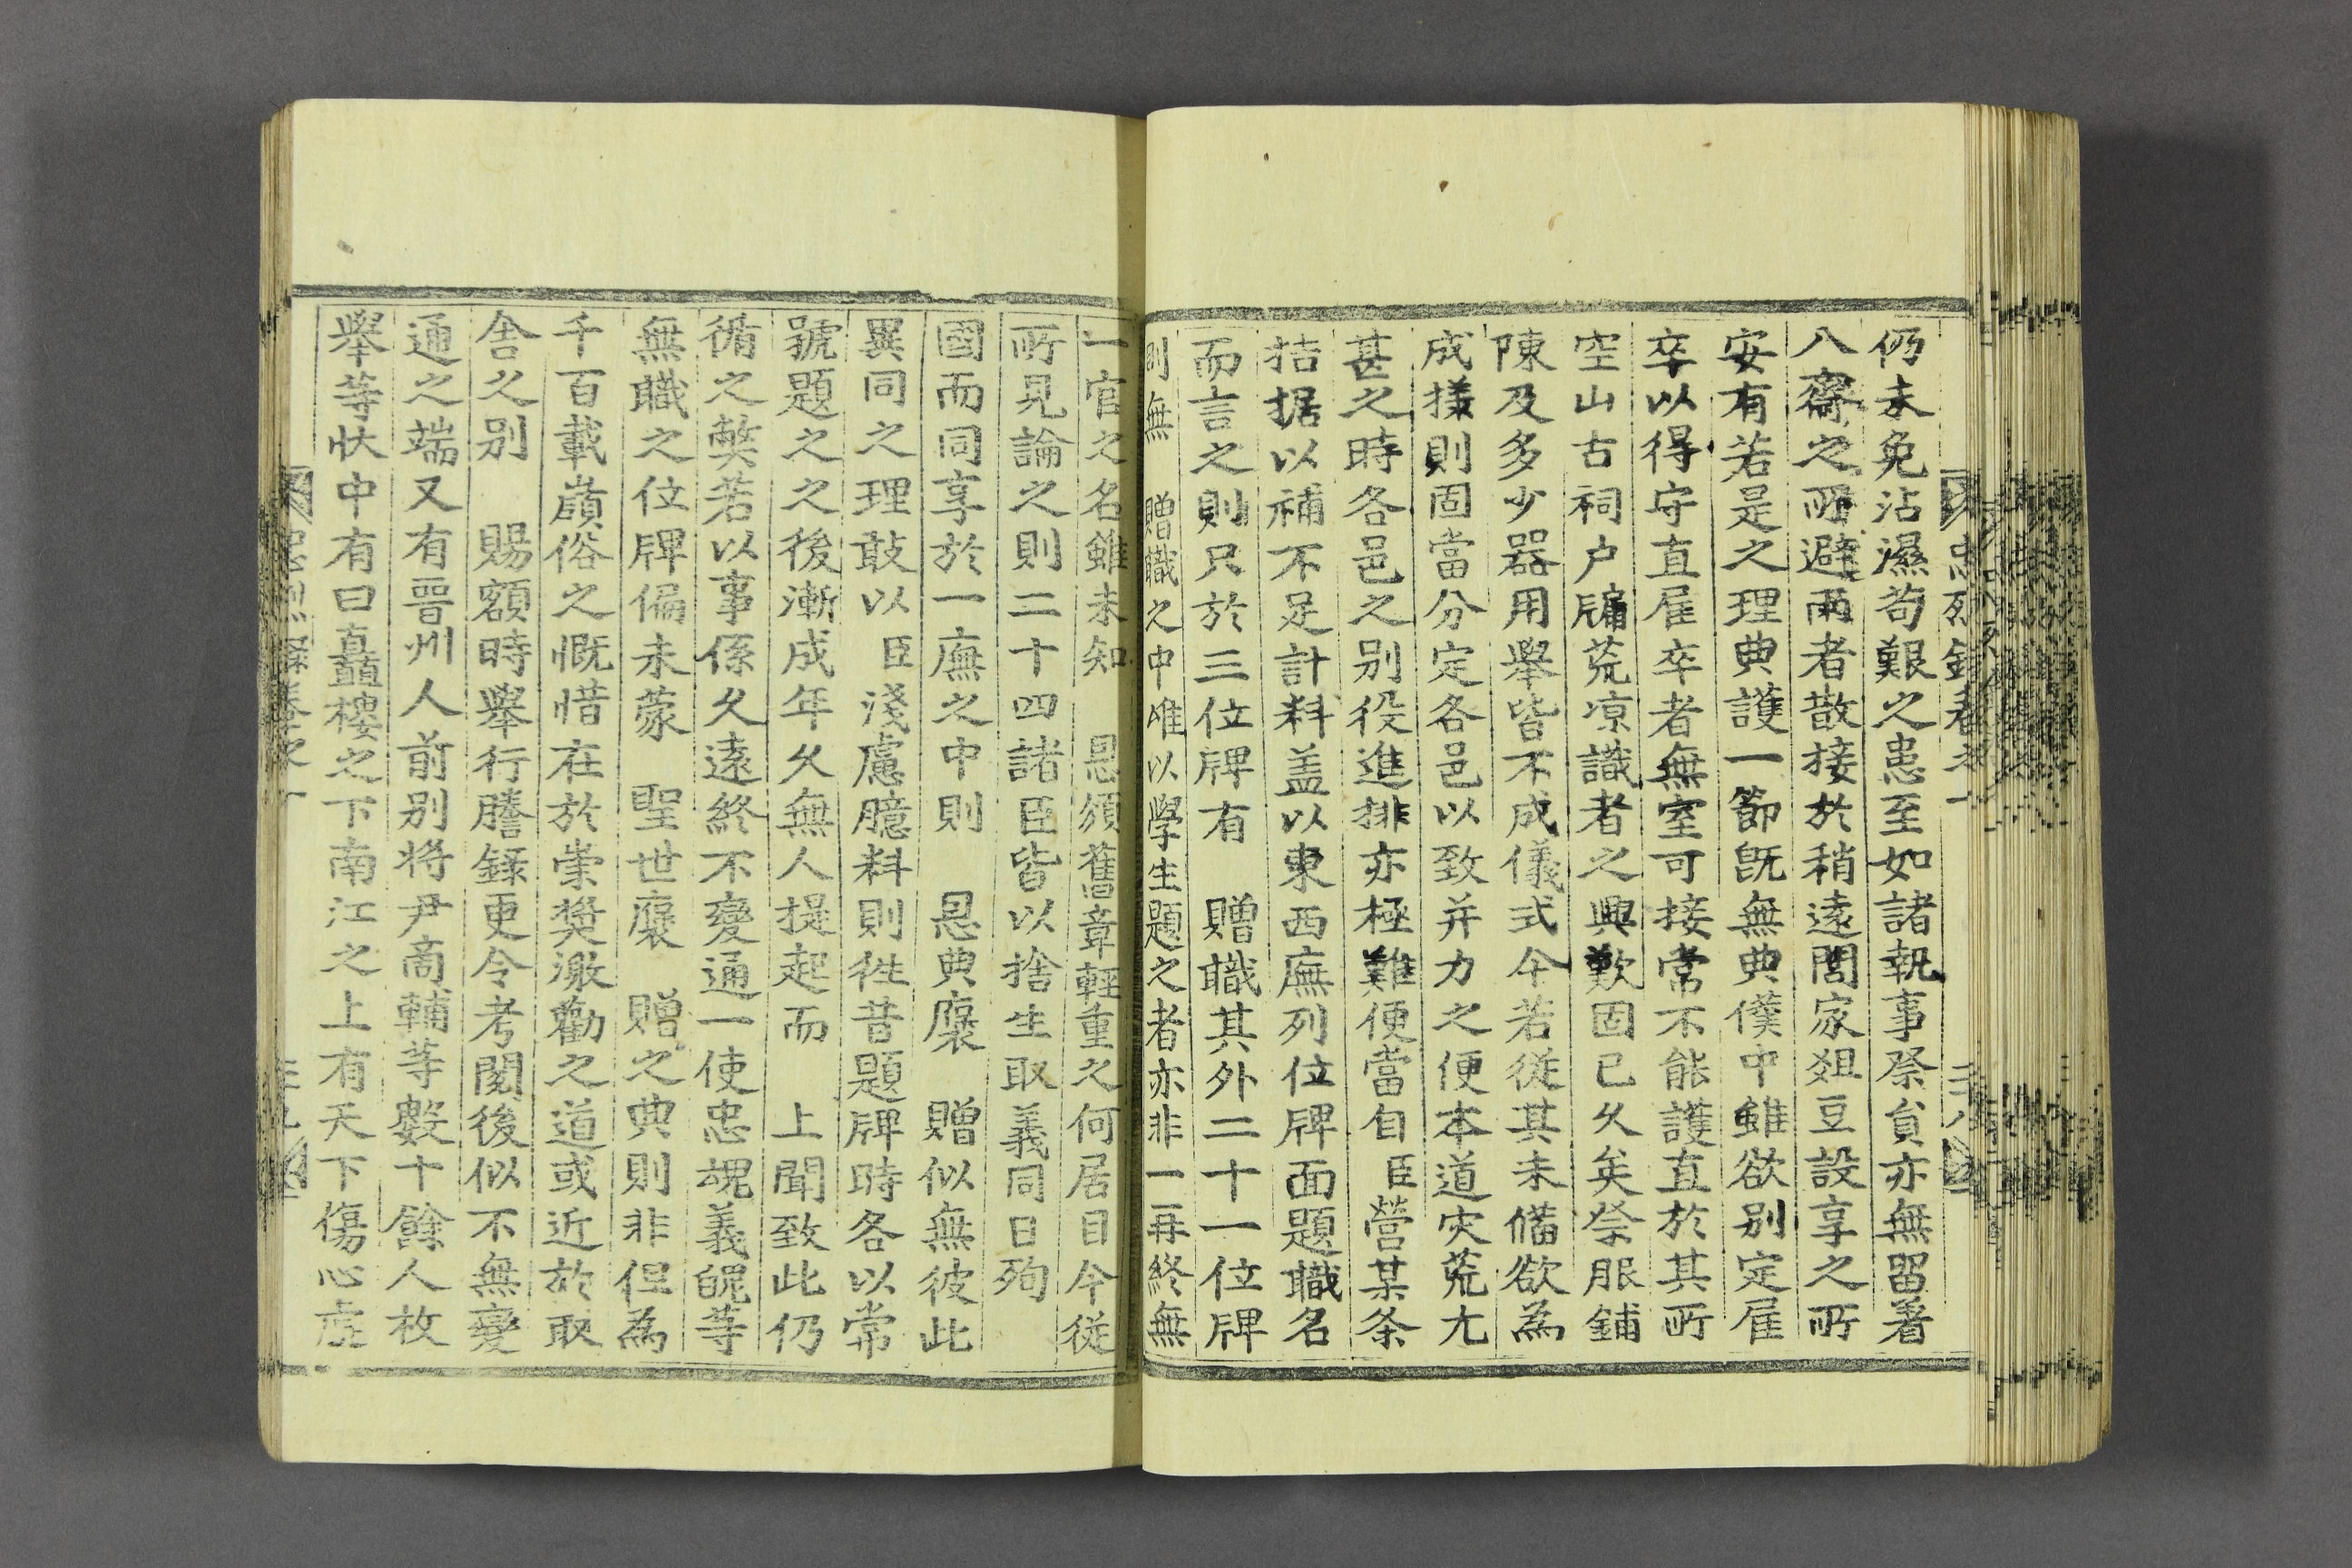 忠烈錄卷之一
二十八
仍未免沾濕苟艱之患至如諸執事祭貟亦無留着
八齋之所避雨者散接於稍遠閭家俎豆設享之所
安有若是之理典護一節旣無典僕中雖欲别定雇
卒以得守直雇卒者無室可接常不能護直於其所
空山古祠户牖荒凉識者之興歎固已久矣祭服鋪
陳及多少器用舉皆不成儀式今若從其未備欲為
成㨾則固當分定各邑以致并力之便本道灾荒尤
甚之時各邑之别役進排亦極難便當自 臣營某条
拮据以補不足計料盖以東西廡列位牌面題職名
而言之則只於三位牌有 贈職其外二十一位牌
則無 贈職之中唯以學生題之者亦非一再終無
一官之名雖未知 恩須舊章輕重之何居目今從
所見論之則二十四諸臣皆以捨生取義同日殉
國而同享於一廡之中則 恩典褒 贈似無彼此
異同之理敢以 臣淺慮臆料則徃昔題牌時各以常
號題之之後漸成年久無人提起而 上聞致此仍
循之獘若以事係久遠終不變通一使忠魂義魄等
無職之位牌偏未蒙 聖世褒 贈之典則非但為
千百載嶺俗之慨惜在於崇奬激勸之道或近於取
舍之别 賜額時舉行謄録更令考閱後似不無變
通之端又有晉州人前别将尹啇輔等數十餘人枚
舉等伏中有曰矗樓之下南江之上有天下傷心虗